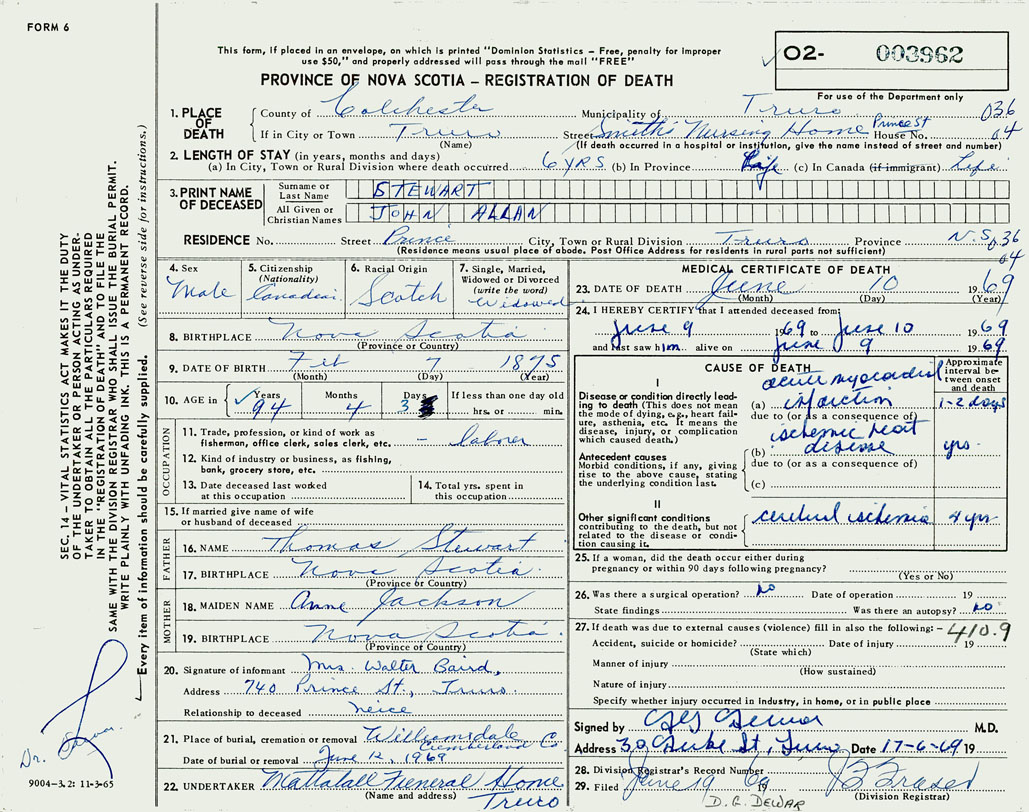 FORM 6
This form, if placed in an envelope, on which is printed "Dominion Statistics – Free, penalty for improper
use $50," and properly addressed will pass through the mail "FREE"
PROVINCE OF NOVA SCOTIA – REGISTRATION OF DEATH
O2- 003962
For use of the Department only
1. PLACE OF DEATH County of Colchester Municipality of Truro 036
If in City or Town Truro Street Smith's Nursing Home Prince St House No. 04
(Name) (If death occurred in a hospital or institution, give the name instead of street and number)
2. LENGTH OF STAY (in years, months and days)
(a) In City, Town or Rural Division where death occurred 6 yrs (b) In Province Life (c) In Canada (if immigrant) Life
3. PRINT NAME OF DECEASED Surname or Last Name STEWART
All Given or Christian Names JOHN ALLAN
RESIDENCE No. Street Prince City, Town or Rural Division Truro Province N.S. 036
(Residence means usual place of abode. Post Office Address for residents in rural parts not sufficient) 04
4. Sex Male
5. Citizenship (Nationality) Canadian
6. Racial Origin Scotch
7. Single, Married, Widowed or Divorced (write the word) Widowed
8. BIRTHPLACE Nova Scotia
(Province or Country)
9. DATE OF BIRTH Feb 7 1875
(Month) (Day) (Year)
10. AGE in Years 94 Months 4 Days 3 If less than one day old
hrs. or min.
OCCUPATION
11. Trade, profession, or kind of work as
fisherman, office clerk, sales clerk, etc. – laborer
12. Kind of industry or business, as fishing,
bank, grocery store, etc.
13. Date deceased last worked
at this occupation
14. Total yrs. spent in
this occupation
15. If married give name of wife
or husband of deceased
FATHER
16. NAME Thomas Stewart
17. BIRTHPLACE Nova Scotia
(Province or Country)
MOTHER
18. MAIDEN NAME Anne Jackson
19. BIRTHPLACE Nova Scotia
(Province or Country)
20. Signature of informant Mrs. Walter Baird,
Address 740 Prince St., Truro.
Relationship to deceased neice
21. Place of burial, cremation or removal Williamsdale
Cumberland Co.
Date of burial or removal June 12, 1969
22. UNDERTAKER Mattatall Funeral Home
(Name and address) Truro
MEDICAL CERTIFICATE OF DEATH
23. DATE OF DEATH June 10 1969
(Month) (Day) (Year)
24. I HEREBY CERTIFY that I attended deceased from:
June 9 1969 to June 10 1969
and last saw him alive on June 9 1969
CAUSE OF DEATH
Approximate interval between onset and death
I
Disease or condition directly leading to death (This does not mean the mode of dying, e.g., heart failure, asthenia, etc. It means the disease, injury, or complication which caused death.)
acute myocardial
(a) infarction 1-2 days
due to (or as a consequence of)
ischemic heart
Antecedent causes
Morbid conditions, if any, giving rise to the above cause, stating the underlying condition last.
(b) disease yrs
due to (or as a consequence of)
(c)
II
Other significant conditions
contributing to the death, but not related to the disease or condition causing it.
cerebral ischemia 4 yrs
25. If a woman, did the death occur either during
pregnancy or within 90 days following pregnancy?
(Yes or No)
26. Was there a surgical operation? no Date of operation 19
State findings Was there an autopsy? no
27. If death was due to external causes (violence) fill in also the following: – 410.9
Accident, suicide or homicide? Date of injury 19
(State which)
Manner of injury
(How sustained)
Nature of injury
Specify whether injury occurred in industry, in home, or in public place
Signed by M.D.
Address St, Truro Date 17-6-69 19
28. Division Registrar's Record Number
29. Filed June 19 69
(Division Registrar)
D. G. DEWAR
SEC. 14 – VITAL STATISTICS ACT MAKES IT THE DUTY
OF THE UNDERTAKER OR PERSON ACTING AS UNDER-
TAKER TO OBTAIN ALL THE PARTICULARS REQUIRED
IN THE "REGISTRATION OF DEATH" AND TO FILE THE
SAME WITH THE DIVISION REGISTRAR WHO SHALL ISSUE THE BURIAL PERMIT.
WRITE PLAINLY WITH UNFADING INK. THIS IS A PERMANENT RECORD.
Every item of information should be carefully supplied. (See reverse side for instructions.)
Dr.
9004-3.2: 11-3-65